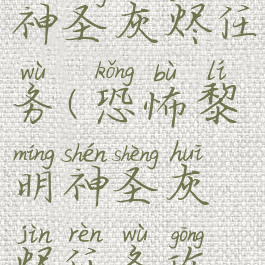 神圣灰烬任
wù kǒng bù lí
务(恐怖黎
míng shén shèng huī
明神圣灰
jìn rèn wù gōng
烬任务攻